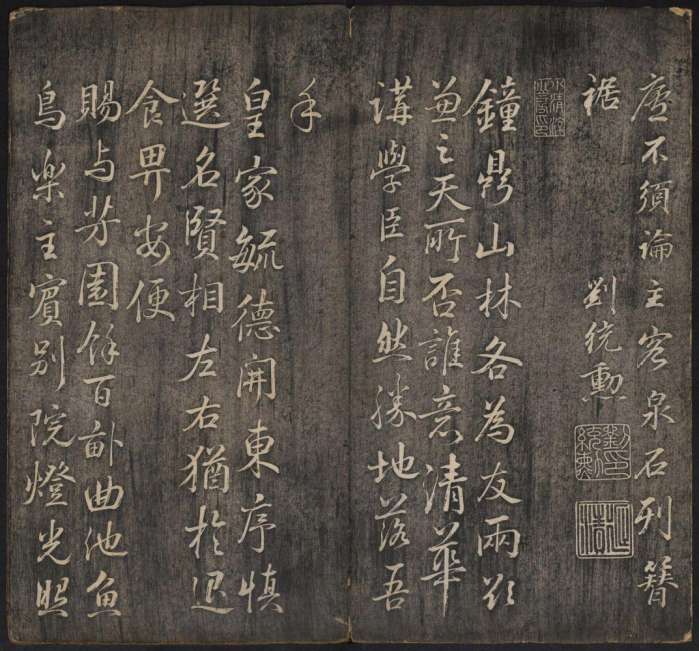 廬不須論主客泉石列簪
裾
劉統勳
鐘鼎山林各為友兩欲
兼之天所否誰意清華
講學臣自然勝地落吾
手
皇家毓德開東序慎
選名賢相左右猶於退
食畀安便
賜与芳園餘百畝曲池魚
鳥樂主賓別院燈光照